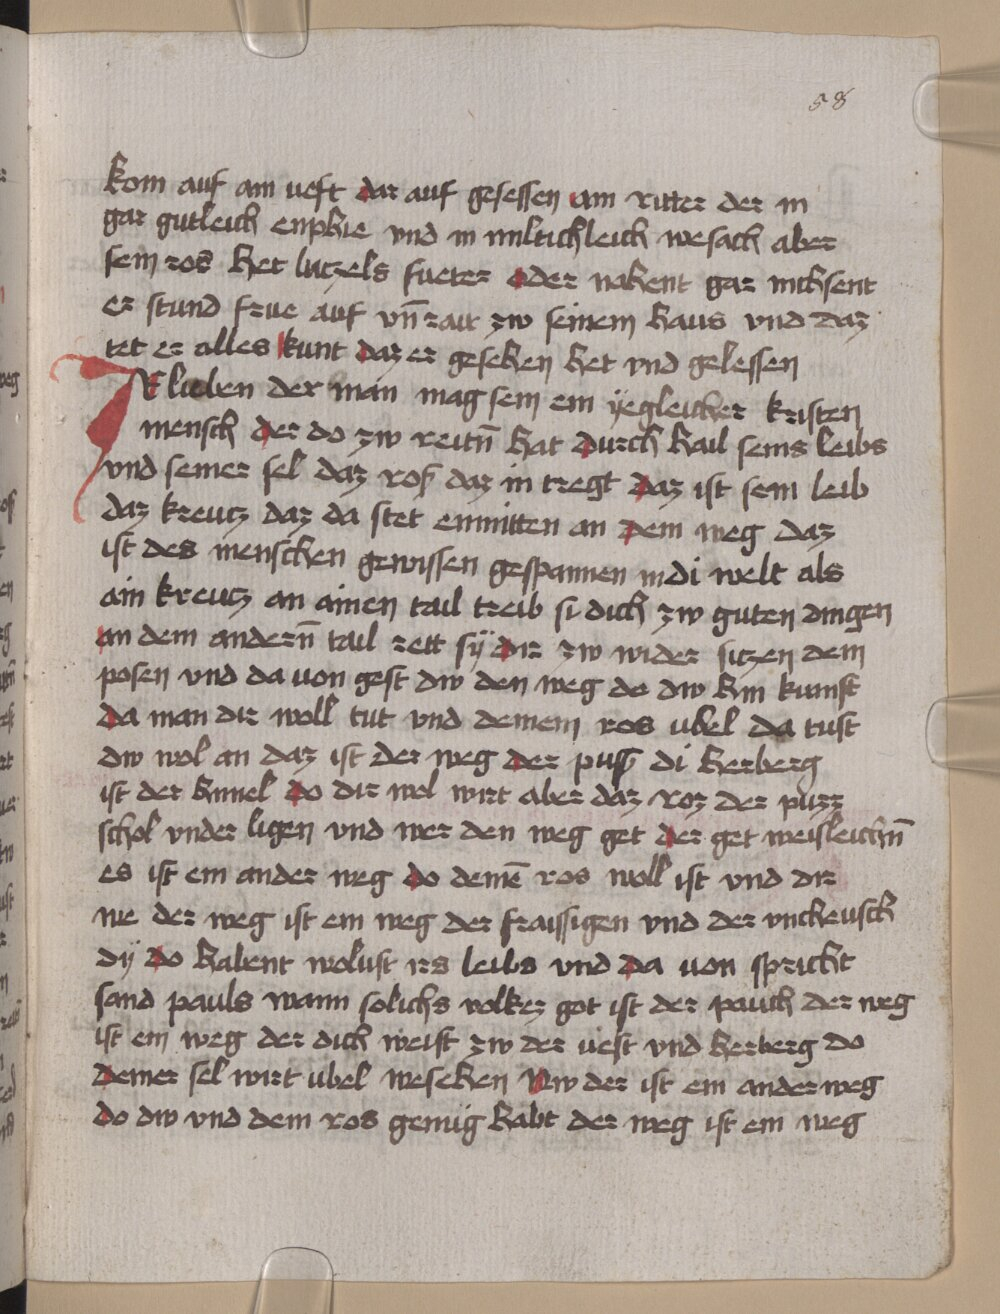 58
kom auf ain vest dar auf gesessen ain ritter der in
gar gutleich enphie vnd in miltichleich wesach aber
sein ros het lutzels fueter oder nahent gar nichsent
er stund frue auf vn̄ rait zw seinem haus vnd daz
tet er alles kunt daz er gesehen het vnd gelessen
lieben der man mag sein ein ÿegleicher kristen
mensch der do zw reitn̄ hat durch hail seins leibs
vnd seiner sel daz ros daz in tregt daz ist sein leib
daz kreutz daz da stet enmitten an dem weg daz
ist des menschen gewissen gespannen in di welt als
ain kreutz an ainen tail treib si dich zw guten dingen
an dem andern̄ tail rett sÿ dir zw wider sitzen dem
posen vnd da uon gest dw den weg do dw hin kumst
da man dir woll tut vnd deinem ros ubel da tust
dw wol an daz ist der weg der puss di herberg
ist der himel do dir wol wirt aber daz roz der puzz
schol vnder ligen vnd wer den weg get der get weisleichn̄
es ist ein ander weg do deinē ros woll ist vnd dir
we der weg ist ein weg der fraissigen vnd der vncheusch
dÿ do habent wolust irs leibs vnd da uon spricht
sand pauls wann solichs volkez got ist der pauch der weg
ist ein weg der dich weist zw der uest vnd herberg do
deiner sel wirt ubel wesehen Nw der ist ein ander weg
do dw vnd dein ros genüg habt der weg ist ein weg